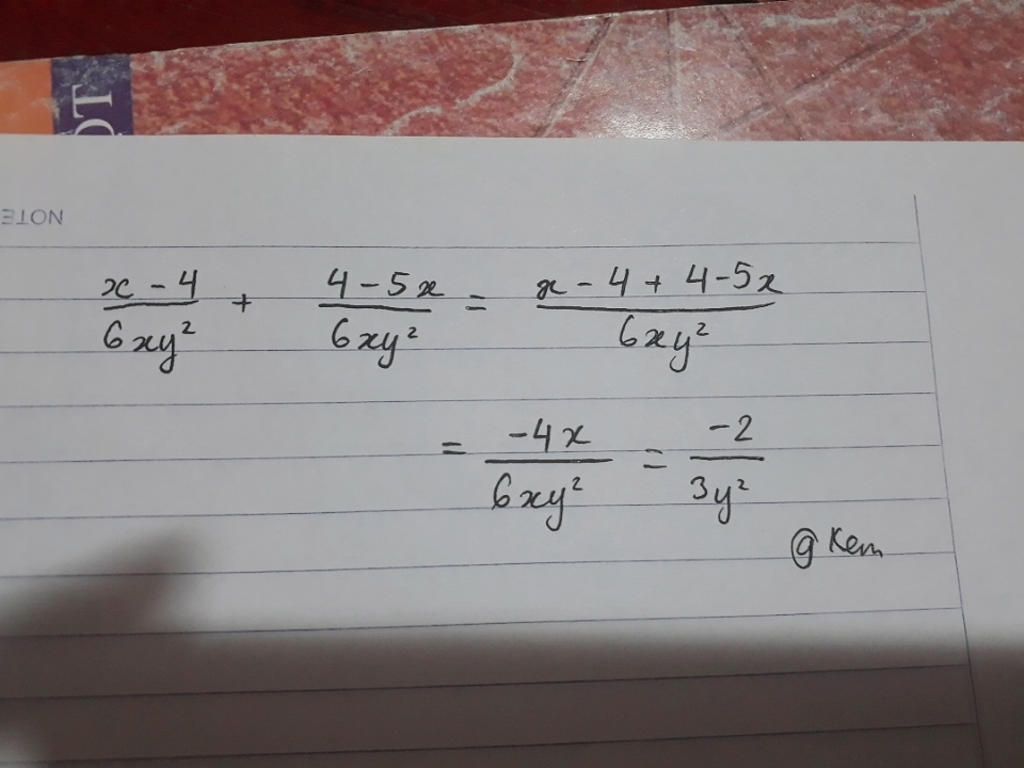 QT
NOTE
x - 4 / 6xy² + 4 - 5x / 6xy² = x - 4 + 4 - 5x / 6xy²
= -4x / 6xy² = -2 / 3y²
@ Kem